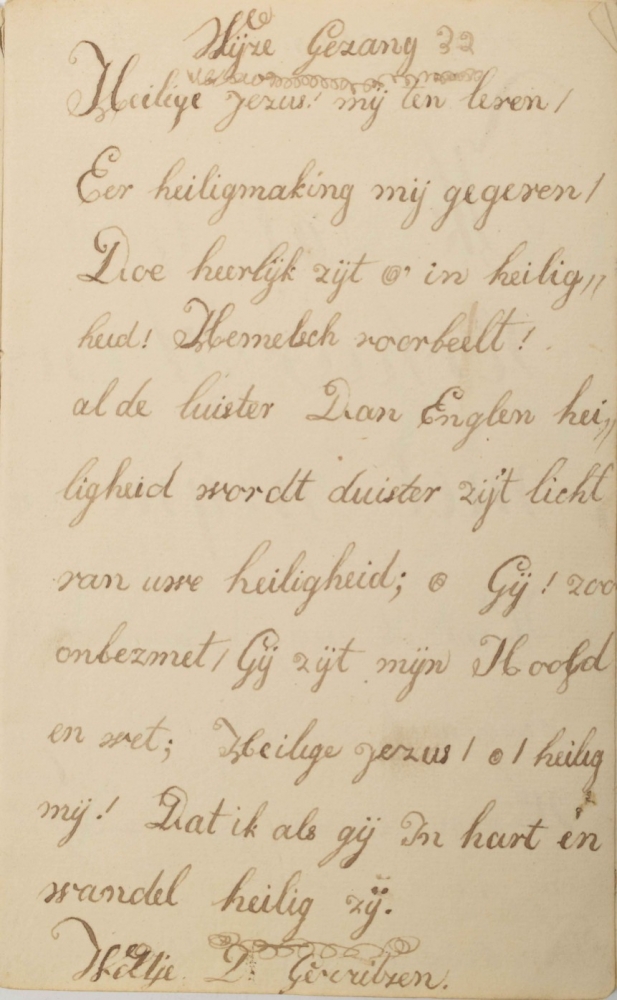 Wijze Gezang 32
Heilige Jezus! mij ten leven /
Eer heiligmaking mij gegeven /
Doe heerlijk zijt o' in heilig,,
heid! Hemelsch voorbeelt!
al de luister Dan Englen hei,,
ligheid wordt duister zijt licht
van uwe heiligheid; o Gij! zoo
onbezmet / Gij zijt mijn Hoofd
en wet; Heilige Jezus / o / heilig
mij! Dat ik als gij In hart en
wandel heilig zij.
D. Gerritzen.